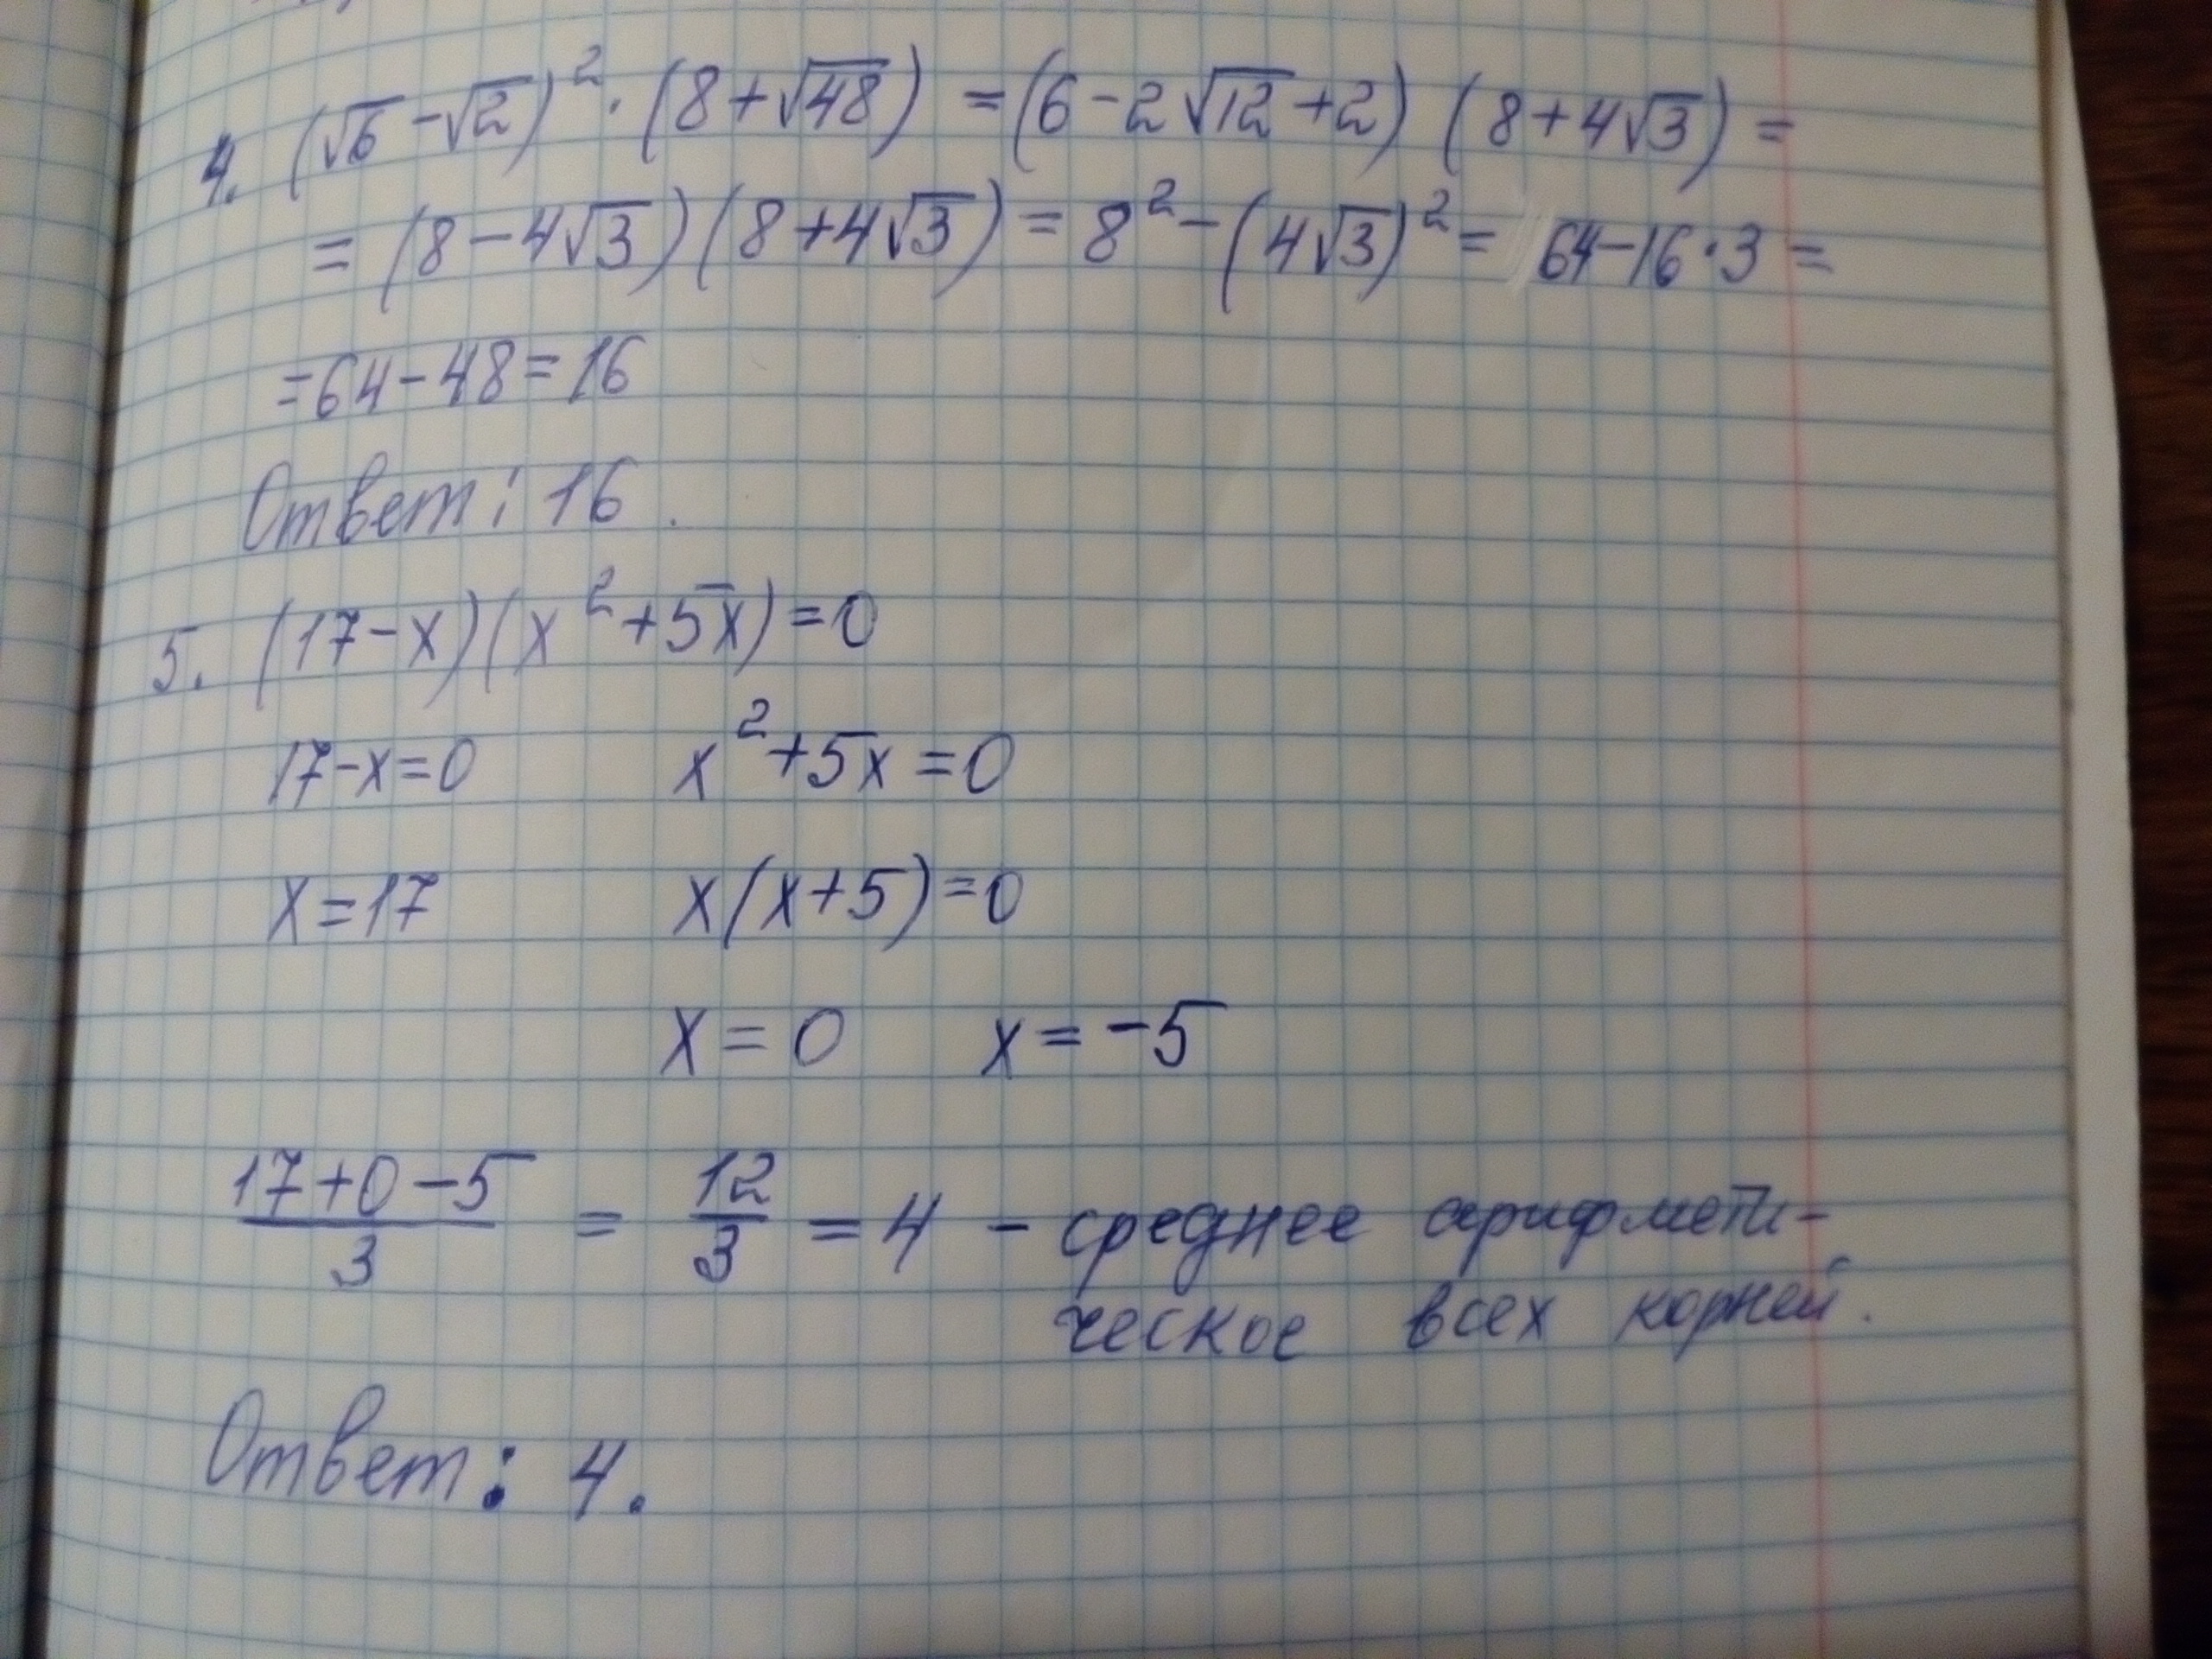 4. (√6 - √2)² · (8 + √48) = (6 - 2√12 + 2) (8 + 4√3) =
= (8 - 4√3)(8 + 4√3) = 8² - (4√3)² = 64 - 16 · 3 =
= 64 - 48 = 16
Ответ: 16.
5. (17 - x)(x² + 5x) = 0
17 - x = 0 x² + 5x = 0
x = 17 x(x + 5) = 0
x = 0 x = -5
(17 + 0 - 5)/3 = 12/3 = 4 - среднее арифмети-
ческое всех корней.
Ответ: 4.